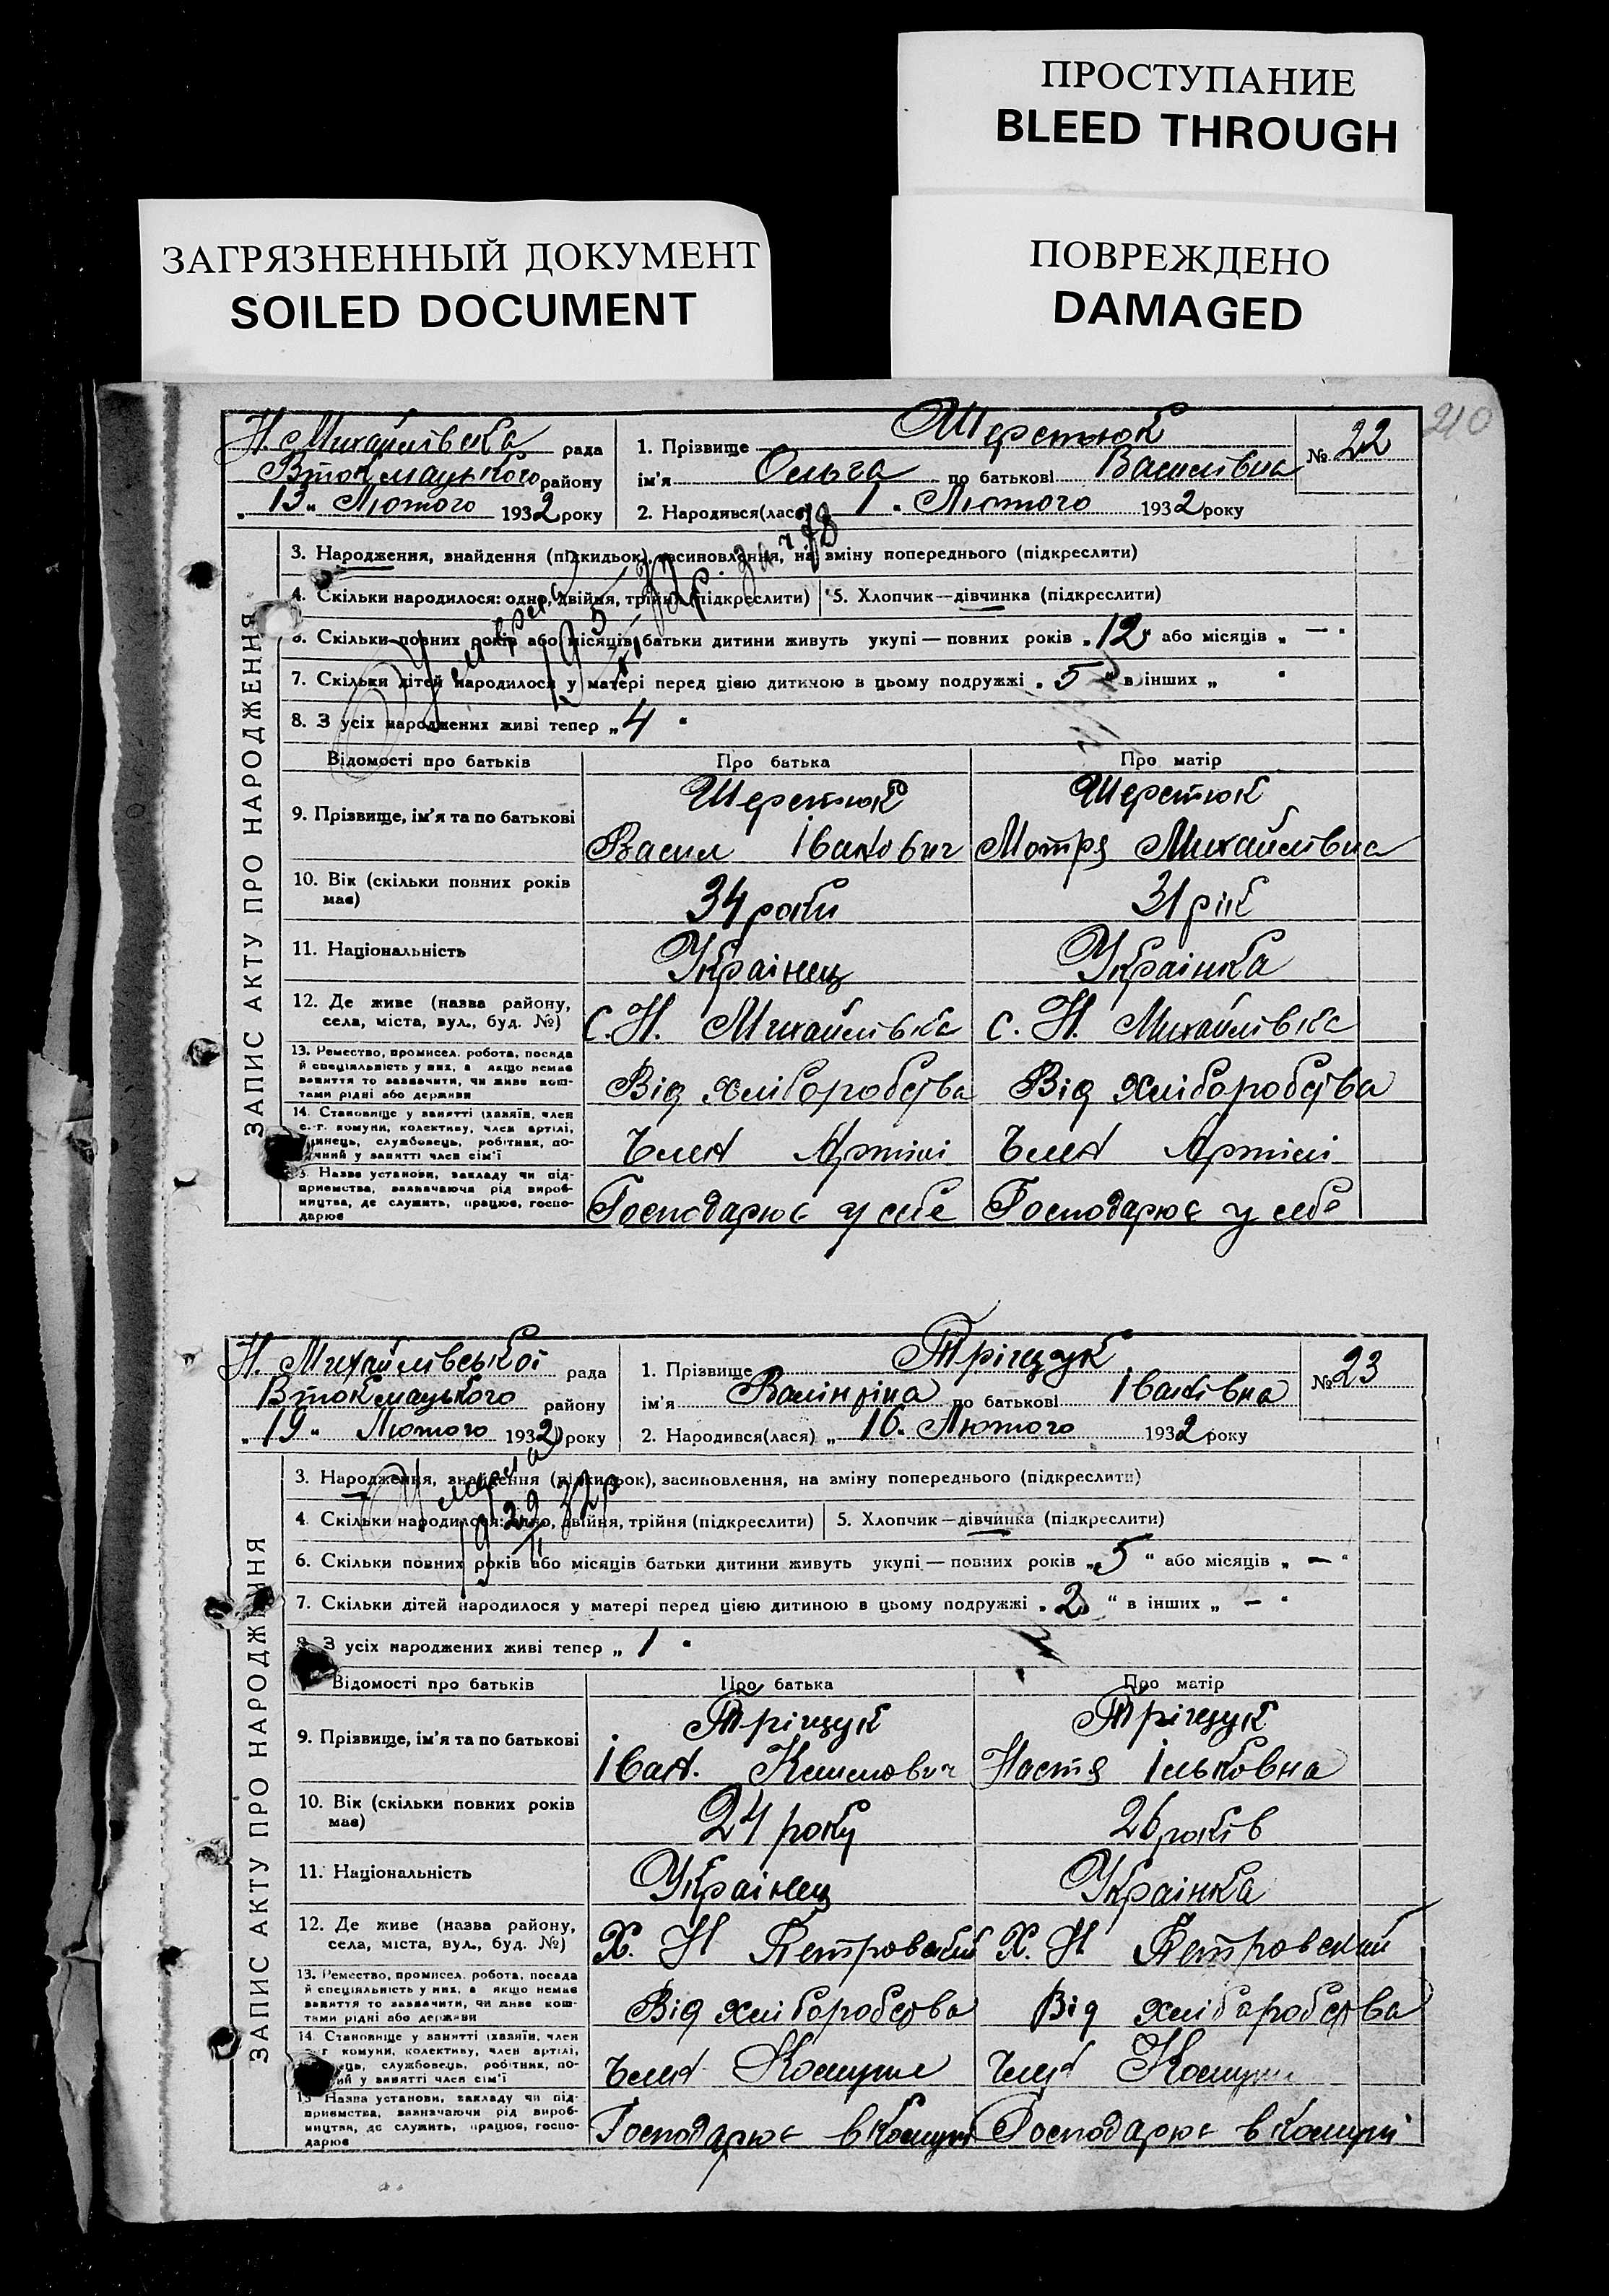 ПРОСТУПАНИЕ
BLEED THROUGH
ЗАГРЯЗНЕННЫЙ ДОКУМЕНТ
SOILED DOCUMENT
ПОВРЕЖДЕНО
DAMAGED
210
Н. Михайлівська рада
Втокмацького району
„13„ Лютого 1932 року
1. Прізвище Шеретюк
№ 22
ім'я Ольга по батькові Василівна
2. Народився(лася) 1 „ Лютого 1932 року
ЗАПИС АКТУ ПРО НАРОДЖЕННЯ
3. Народження, знайдення (підкидьок), засиновлення, на зміну попереднього (підкреслити)
4. Скільки народилося: одно, двійня, трійня (підкреслити) 5. Хлопчик—дівчинка (підкреслити)
6. Скільки повних років або місяців батьки дитини живуть укупі — повних років „12„ або місяців „ — "
7. Скільки дітей народилося у матері перед цією дитиною в цьому подружжі „ 5 " в інших „ "
8. З усіх народжених живі тепер „ 4 "
Умерла
Відомості про батьків Про батька Про матір
9. Прізвище, ім'я та по батькові
Шеретюк Шеретюк
Васил Іванович Мотря Михайлівна
10. Вік (скільки повних років має) 34 роки 31 рік
11. Національність Украінец Украінка
12. Де живе (назва району, села, міста, вул., буд. №) с. Н. Михайлівка с. Н. Михайлівка
13. Ремество, промисел, робота, посада й спеціяльність у них, а якщо немає заняття то зазначити, чи живе коштами рідні або держави
Від хліборобства Від хліборобства
14. Становище у занятті (хазяїн, член с.-г. комуни, колективу, член артілі, службовець, робітник, помічний у занятті член сім'ї
Член Артілі Член Артілі
15. Назва установи, закладу чи підприємства, зазначаючи рід виробництва, де служить, працює, господарює
Господарює у себе Господарює у себе
Н. Михайлівськоі рада
Втокмацького району
„19„ Лютого 1932 року
1. Прізвище Тріщук
№ 23
ім'я Валінтіна по батькові Іванівна
2. Народився(лася) „ 16 „ Лютого 1932 року
ЗАПИС АКТУ ПРО НАРОДЖЕННЯ
3. Народження, знайдення (підкидьок), засиновлення, на зміну попереднього (підкреслити)
4. Скільки народилося: одно, двійня, трійня (підкреслити) 5. Хлопчик—дівчинка (підкреслити)
6. Скільки повних років або місяців батьки дитини живуть укупі — повних років „ 5 " або місяців „ — "
7. Скільки дітей народилося у матері перед цією дитиною в цьому подружжі „ 2 " в інших „ — "
8. З усіх народжених живі тепер „ 1 "
Умерла
Відомості про батьків Про батька Про матір
9. Прізвище, ім'я та по батькові
Тріщук Тріщук
Іван. Настя Ільковна
10. Вік (скільки повних років має) 24 року 26 років
11. Національність Украінец Украінка
12. Де живе (назва району, села, міста, вул., буд. №) Х. Н Петровский Х. Н Петровский
13. Ремество, промисел, робота, посада й спеціяльність у них, а якщо немає заняття то зазначити, чи живе коштами рідні або держави
Від хліборобства Від хліборобства
14. Становище у занятті (хазяїн, член с.-г. комуни, колективу, член артілі, службовець, робітник, помічний у занятті член сім'ї
Член Комуни Член Комуни
15. Назва установи, закладу чи підприємства, зазначаючи рід виробництва, де служить, працює, господарює
Господарює в Комуні Господарює в Комуні